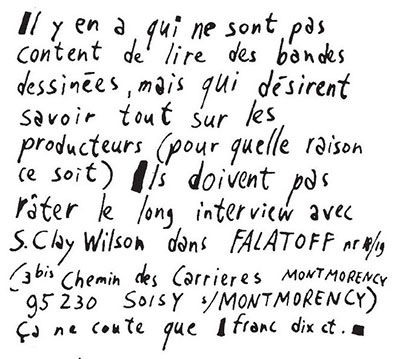 Il y en a qui ne sont pas
content de lire des bandes
dessinées, mais qui désirent
savoir tout sur les
producteurs (pour quelle raison
ce soit) Ils doivent pas
râter le long interview avec
S. Clay Wilson dans FALATOFF nr 18/19
(3 bis Chemin des Carrieres MONTMORENCY
95 230 SOISY s/MONTMORENCY)
Ça ne coute que 1 franc dix ct.